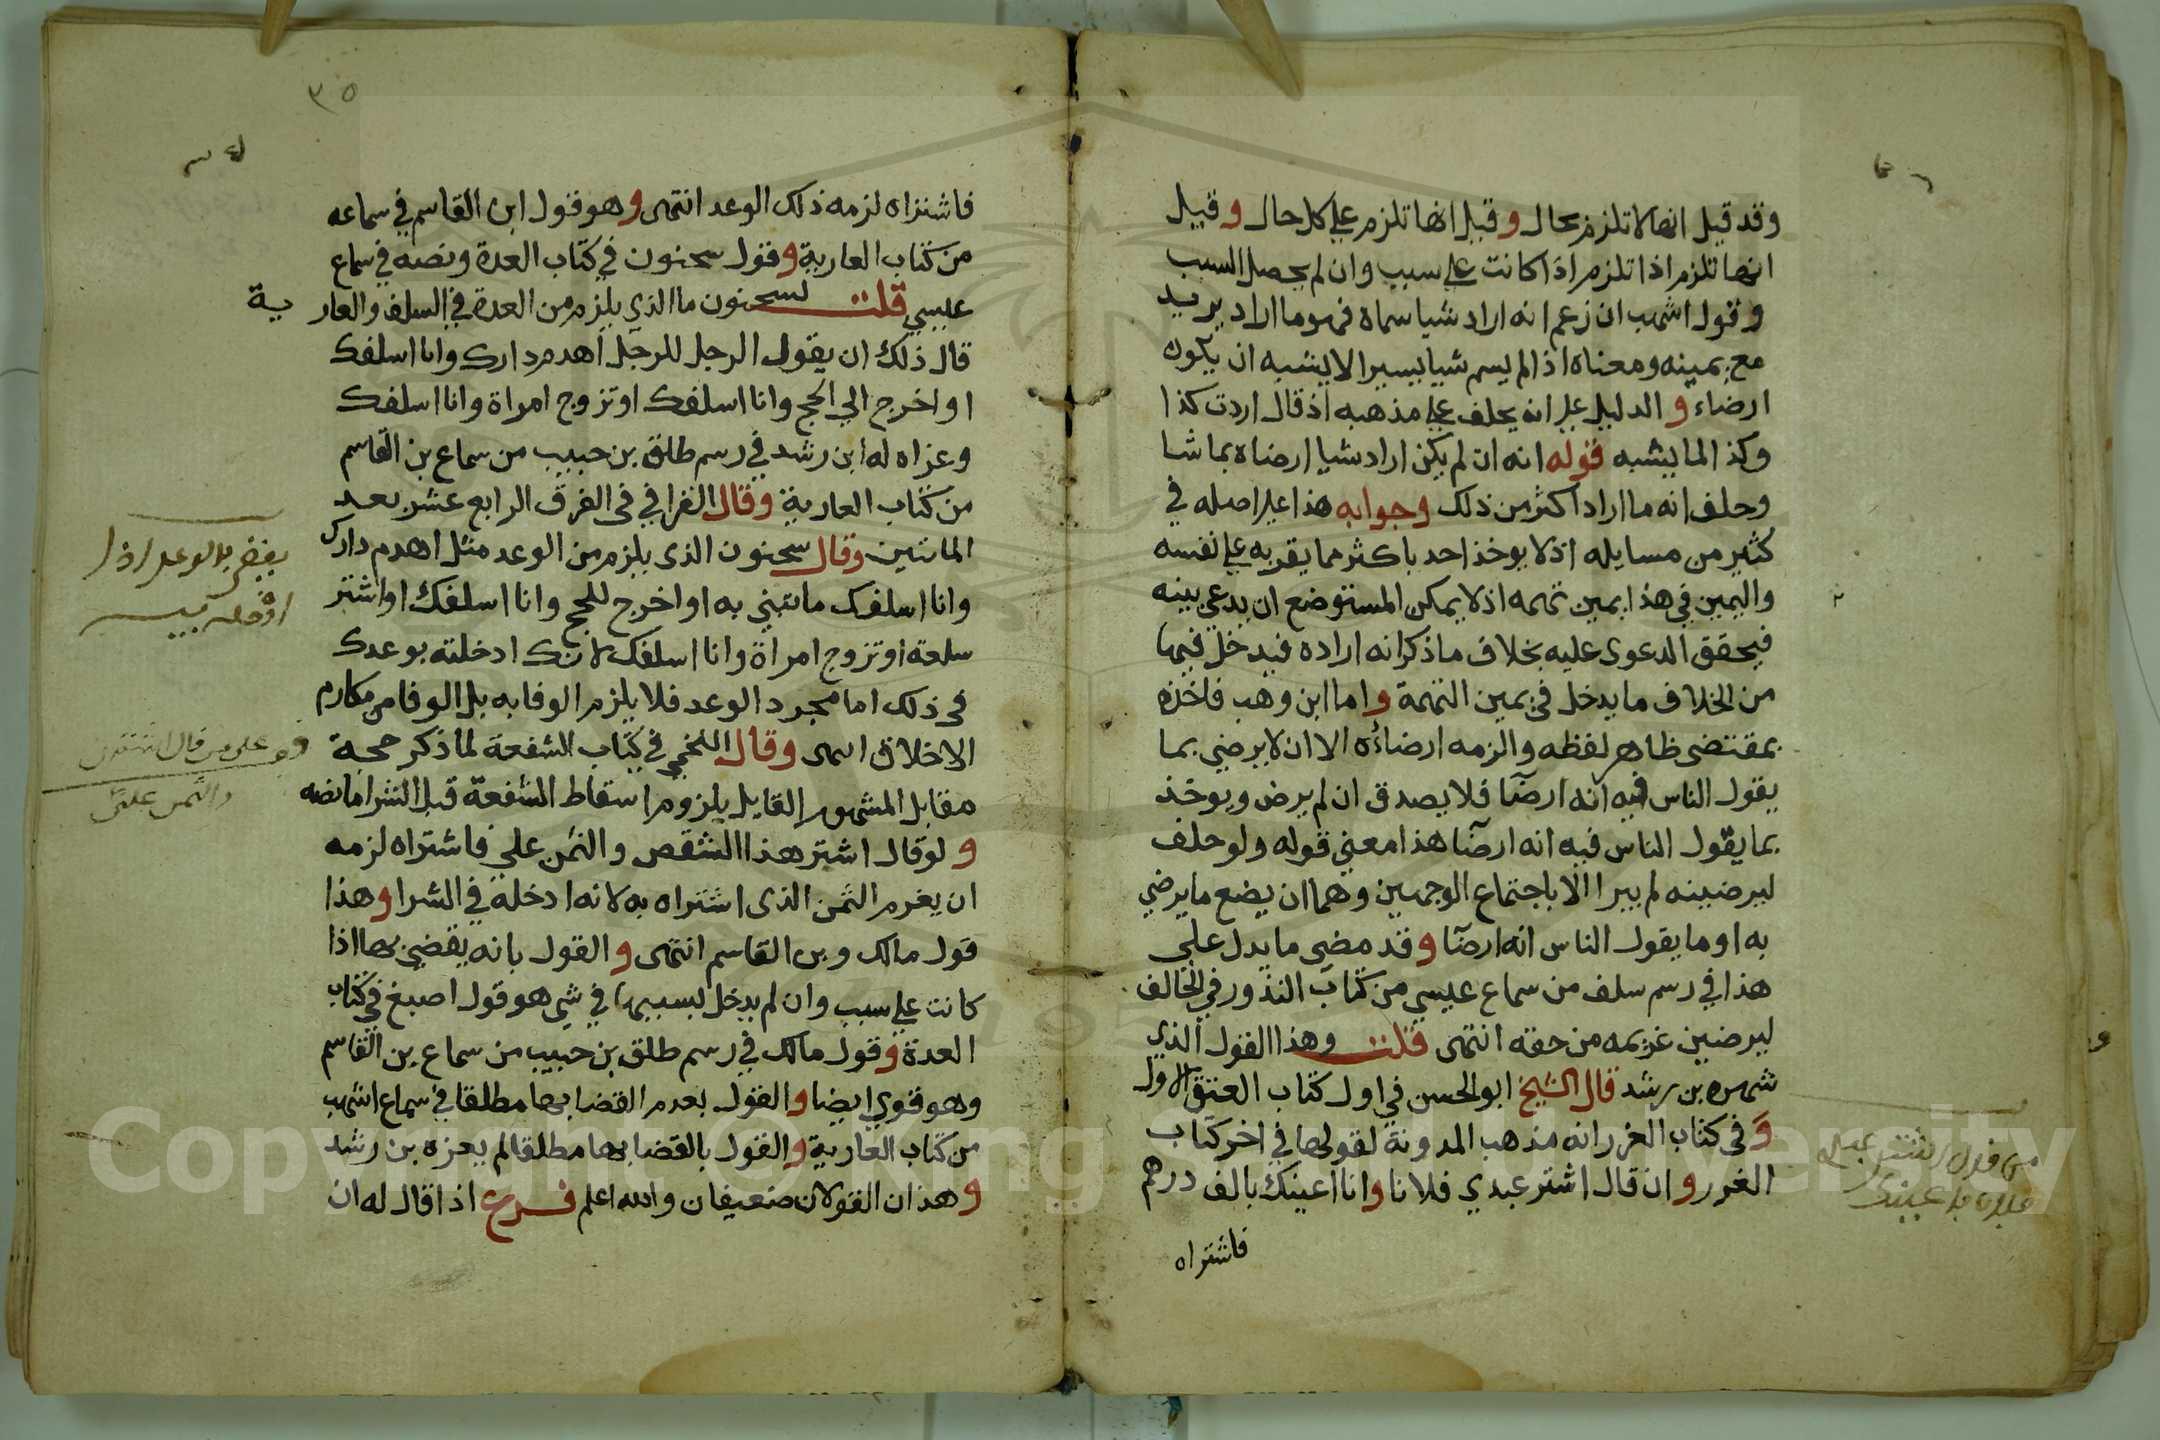 وقد قيل انها لا تلزم بحال وقيل انها تلزم علي كل حال وقيل
انها تلزم اذا تلزم اذا كانت علي سبب وان لم يحصل السبب
وقول اشهب ان زعم انه اراد شيا سماه فهو ما اراد يريد
مع يمينه ومعناه اذا لم يسم شيا يسيرا لا يشبه ان يكون
ارضاء والدليل علي انه يحلف علي مذهبه اذ قال اردت كذا
وكذا لما يشبه قوله انه ان لم يكن اراد شيا ارضاه بما شا
وحلف انه ما اراد اكثر من ذلك وجوابه هذا علي اصله في
كثير من مسايله اذ لا يوخذ احد باكثر مما يقر به علي نفسه
واليمين في هذا يمين تهمه اذ لا يمكن المستوضع ان يدعي بينه
فيحقق الدعوي عليه بخلاف ما ذكر انه اراده فيدخل فيها
من الخلاف ما يدخل في يمين التهمة واما ابن وهب فاخذه
بمقتضي ظاهر لفظه والزمه ارضاءه الا ان لا يرضي بما
يقول الناس فيه انه ارضا فلا يصدق ان لم يرض ويوخذ
بما يقول الناس فيه انه ارضا هذا معني قوله ولو حلف
ليرضينه لم يبرا الا باجتماع الوجهين وهما ان يضع ما يرضي
به او ما يقول الناس انه ارضا وقد مضي ما يدل علي
هذا في رسم سلف من سماع عيسي من كتاب النذور في الحالف
ليرضين غريمه من حقه انتهى قلت وهذا القول الذي
شهره بن رشد قال الشيخ ابو الحسن في اول كتاب العتق الاول
وفي كتاب الغرر انه مذهب المدونة لقولها في اخر كتاب
الغرر وان قال اشتر عبدي فلانا وانا اعينك بالف درهم
فاشتراه
من قول اشتر عبدي
٣٥
فاشتراه لزمه ذلك الوعد انتهى وهو قول ابن القاسم في سماعه
من كتاب العارية وقول سحنون في كتاب العدة ونصه في سماع
عيسي قلت لسحنون ما الذي يلزم من العدة في السلف والعارية
قال ذلك ان يقول الرجل للرجل اهدم دارك وانا اسلفك
او اخرج الي الحج وانا اسلفك او تزوج امراة وانا اسلفك
وعزاه له ابن رشد في رسم طلق بن حبيب من سماع بن القاسم
من كتاب العارية وقال القرافي في الفرق الرابع عشر بعد
المائتين وقال سحنون الذي يلزم من الوعد مثل اهدم دارك
وانا اسلفك ما تبني به او اخرج للحج وانا اسلفك او اشتر
سلعة او تزوج امراة وانا اسلفك لانك ادخلته بوعدك
في ذلك اما مجرد الوعد فلا يلزم الوفا به بل الوفا من مكارم
الاخلاق انتهى وقال اللخمي في كتاب الشفعة لما ذكر حجة
مقابل المشهور القايل يلزوم اسقاط الشفعة قبل الشرا ما نصه
ولو قال اشتر هذا الشقص والثمن علي فاشتراه لزمه
ان يغرم الثمن الذي اشتراه به لانه ادخله في الشرا وهذا
قول مالك وبن القاسم انتهى والقول بانه يقضي بها اذا
كانت علي سبب وان لم يدخل بسببها في شي هو قول اصبغ في كتاب
العدة وقول مالك في رسم طلق بن حبيب من سماع بن القاسم
وهو قوي ايضا والقول بعدم القضا بها مطلقا في سماع اشهب
من كتاب العارية والقول بالقضا بها مطلقا لم يعزه بن رشد
وهذان القولان ضعيفان والله اعلم فرع اذا قال له ان
يقضي بالوعد اذا
والثمن علي